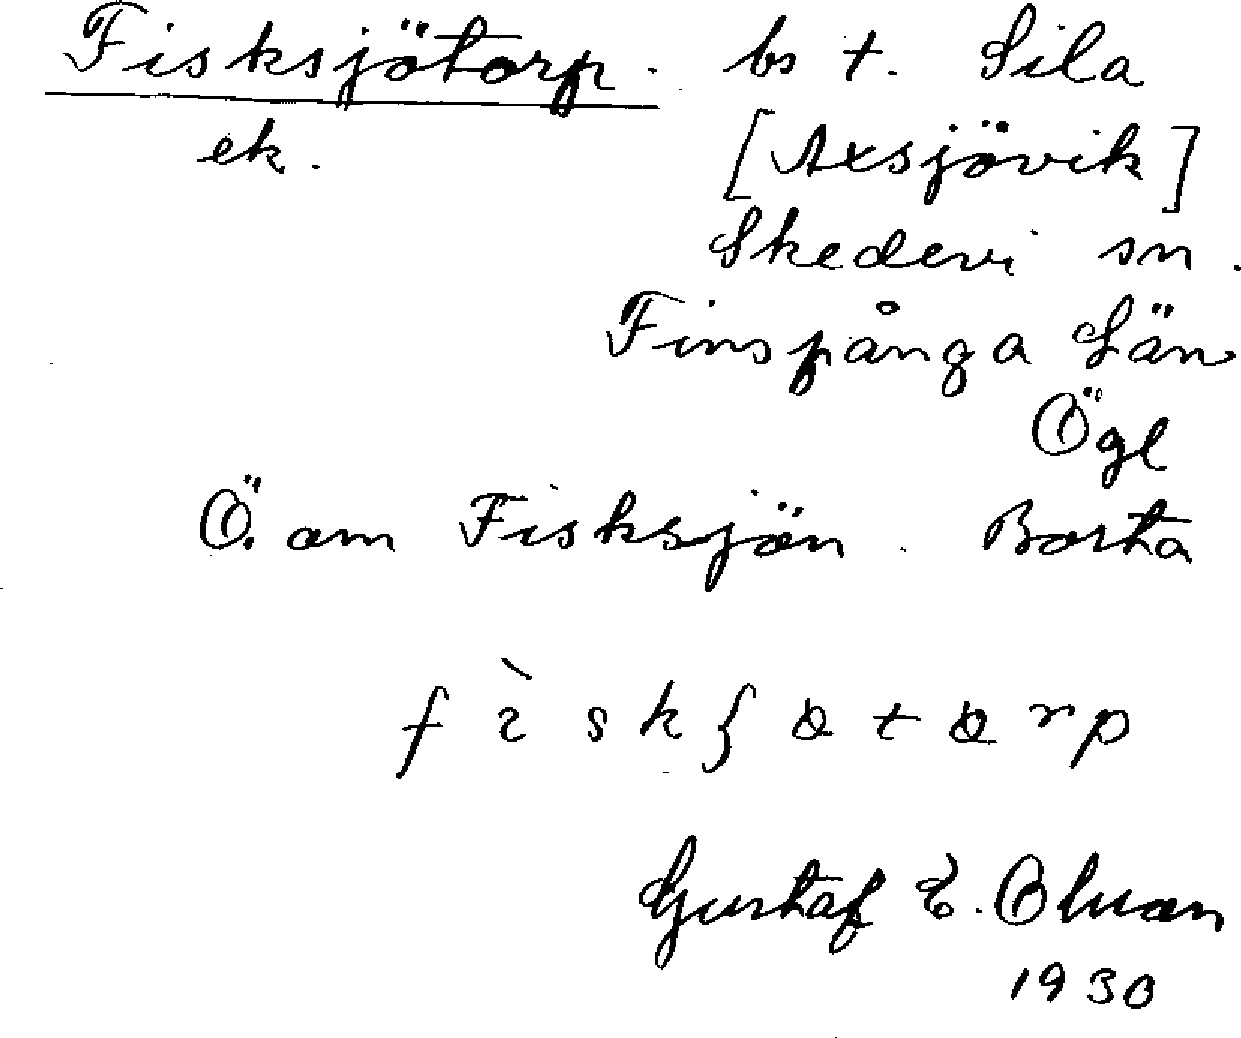 Fisksjötorp. bs t. Sila
ek. [Axsjövik]
Skedevi sn.
Finspånga Län
Ögl
Ö. om Fisksjön. Borta
Gustaf E. Olson
1930